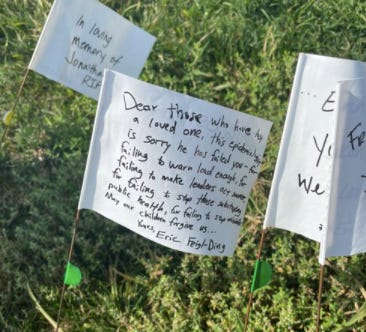 In loving
memory of
Jonatha
RIP
Dear those who have lo
a loved one, this epidemiolog
is sorry he has failed you - for
failing to warn loud enough, for
failing to make leaders act sooner
for failing to stop those sabotaging
public health, for failing to stop
May our children forgive us...
Yours, Eric Feigl-Ding
... E
Yo
We
Fr